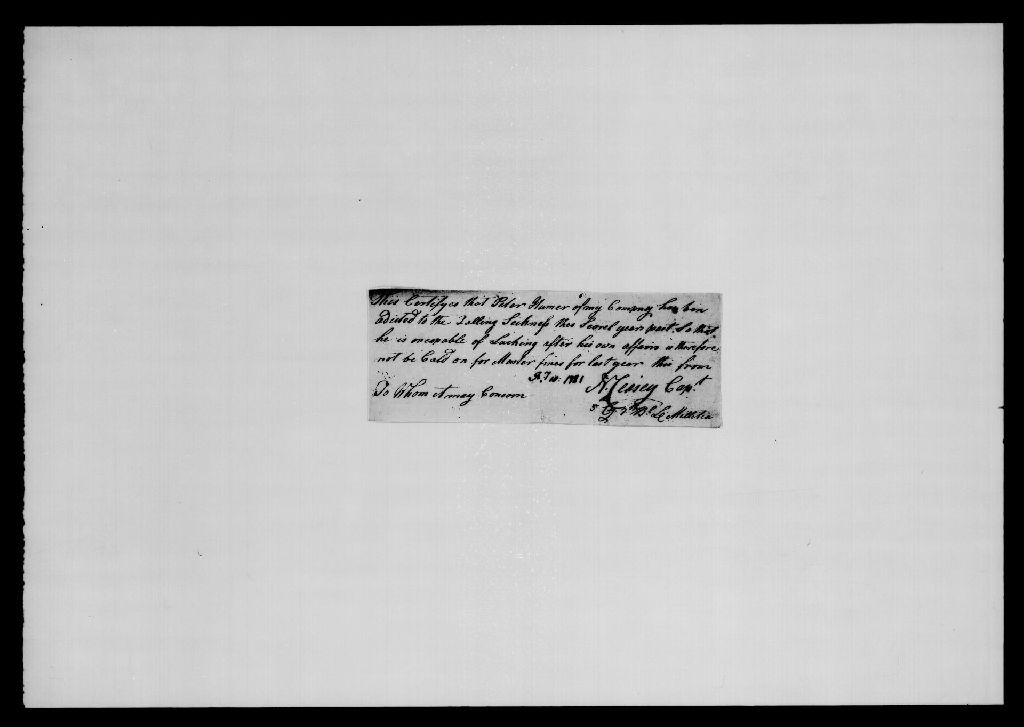 This Certifyes that Petor Hamer of my Company has ben
adicted to the Falling Sickness this Severl years past So that
he is oncapable of Lucking after his own affairs & therefore
not be Cald on for Muster fines for last year this from
1781
Capt
To Whom it may Concern
Millitia